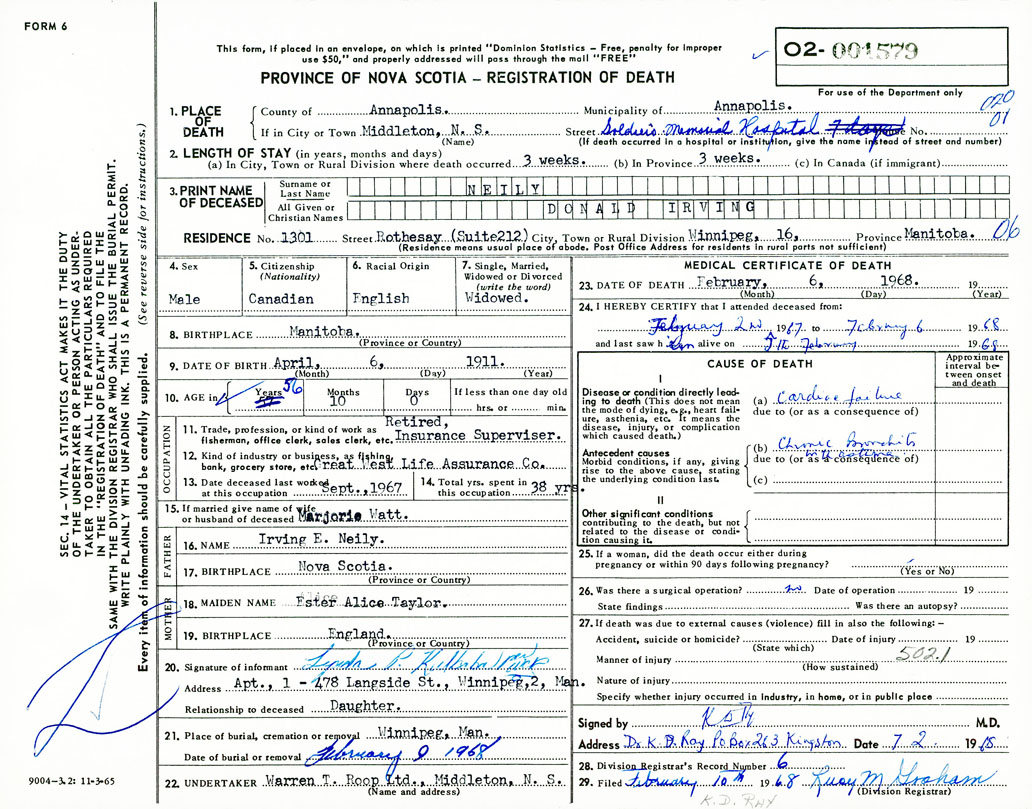 FORM 6
This form, if placed in an envelope, on which is printed "Dominion Statistics – Free, penalty for improper
use $50," and properly addressed will pass through the mail "FREE"
02-001579
PROVINCE OF NOVA SCOTIA – REGISTRATION OF DEATH
For use of the Department only
020
01
1. PLACE OF DEATH
County of Annapolis. Municipality of Annapolis.
If in City or Town Middleton, N. S. Street Soldiers Memorial Hospital 7 days No.
(Name) (If death occurred in a hospital or institution, give the name instead of street and number)
2. LENGTH OF STAY (in years, months and days)
(a) In City, Town or Rural Division where death occurred 3 weeks. (b) In Province 3 weeks. (c) In Canada (if immigrant)
3. PRINT NAME OF DECEASED
Surname or Last Name NEILY
All Given or Christian Names DONALD IRVING
RESIDENCE No. 1301 Street Rothesay (Suite212) City, Town or Rural Division Winnipeg, 16, Province Manitoba. 06
(Residence means usual place of abode. Post Office Address for residents in rural parts not sufficient)
4. Sex
Male
5. Citizenship
(Nationality)
Canadian
6. Racial Origin
English
7. Single, Married,
Widowed or Divorced
(write the word)
Widowed.
8. BIRTHPLACE Manitoba.
(Province or Country)
9. DATE OF BIRTH April, 6, 1911.
(Month) (Day) (Year)
10. AGE in Years 57 56 Months 10 Days 0 If less than one day old
hrs. or min.
OCCUPATION
11. Trade, profession, or kind of work as Retired,
fisherman, office clerk, sales clerk, etc. Insurance Superviser.
12. Kind of industry or business, as fishing,
bank, grocery store, etc. Great West Life Assurance Co.
13. Date deceased last worked
at this occupation Sept.,1967
14. Total yrs. spent in
this occupation 38 yrs.
15. If married give name of wife
or husband of deceased Marjorie Watt.
FATHER
16. NAME Irving E. Neily.
17. BIRTHPLACE Nova Scotia.
(Province or Country)
MOTHER
18. MAIDEN NAME Ester Alice Taylor.
19. BIRTHPLACE England.
(Province or Country)
20. Signature of informant Lynda P.
Address Apt., 1 - 478 Langside St., Winnipeg,2, Man.
Relationship to deceased Daughter.
21. Place of burial, cremation or removal Winnipeg, Man.
Date of burial or removal February 9 1968
22. UNDERTAKER Warren T. Roop Ltd., Middleton, N. S.
(Name and address)
MEDICAL CERTIFICATE OF DEATH
23. DATE OF DEATH February, 6, 1968. 19
(Month) (Day) (Year)
24. I HEREBY CERTIFY that I attended deceased from:
February 2nd 1967 to February 6 1968
and last saw him alive on 5th February 1968
CAUSE OF DEATH
Approximate
interval be-
tween onset
and death
I
Disease or condition directly lead-
ing to death (This does not mean
the mode of dying, e.g., heart fail-
ure, asthenia, etc. It means the
disease, injury, or complication
which caused death.)
(a) Cardiac failure
due to (or as a consequence of)
Antecedent causes
Morbid conditions, if any, giving
rise to the above cause, stating
the underlying condition last.
(b) Chronic Bronchitis
with asthma
due to (or as a consequence of)
(c)
II
Other significant conditions
contributing to the death, but not
related to the disease or condi-
tion causing it.
25. If a woman, did the death occur either during
pregnancy or within 90 days following pregnancy?
(Yes or No)
26. Was there a surgical operation? no Date of operation 19
State findings Was there an autopsy?
27. If death was due to external causes (violence) fill in also the following: –
Accident, suicide or homicide? Date of injury 19
(State which)
Manner of injury 502.1
(How sustained)
Nature of injury
Specify whether injury occurred in industry, in home, or in public place
Signed by M.D.
Address Dr. K. D. Roy PO Box 263 Kingston Date 7 2 1968
28. Division Registrar's Record Number 6
29. Filed February 10th 1968 Ruby M Graham
(Division Registrar)
K.D. ROY
SEC. 14 – VITAL STATISTICS ACT MAKES IT THE DUTY
OF THE UNDERTAKER OR PERSON ACTING AS UNDER-
TAKER TO OBTAIN ALL THE PARTICULARS REQUIRED
IN THE "REGISTRATION OF DEATH" AND TO FILE THE
SAME WITH THE DIVISION REGISTRAR WHO SHALL ISSUE THE BURIAL PERMIT.
WRITE PLAINLY WITH UNFADING INK. THIS IS A PERMANENT RECORD.
Every item of information should be carefully supplied. (See reverse side for instructions.)
9004–3.2: 11-3-65